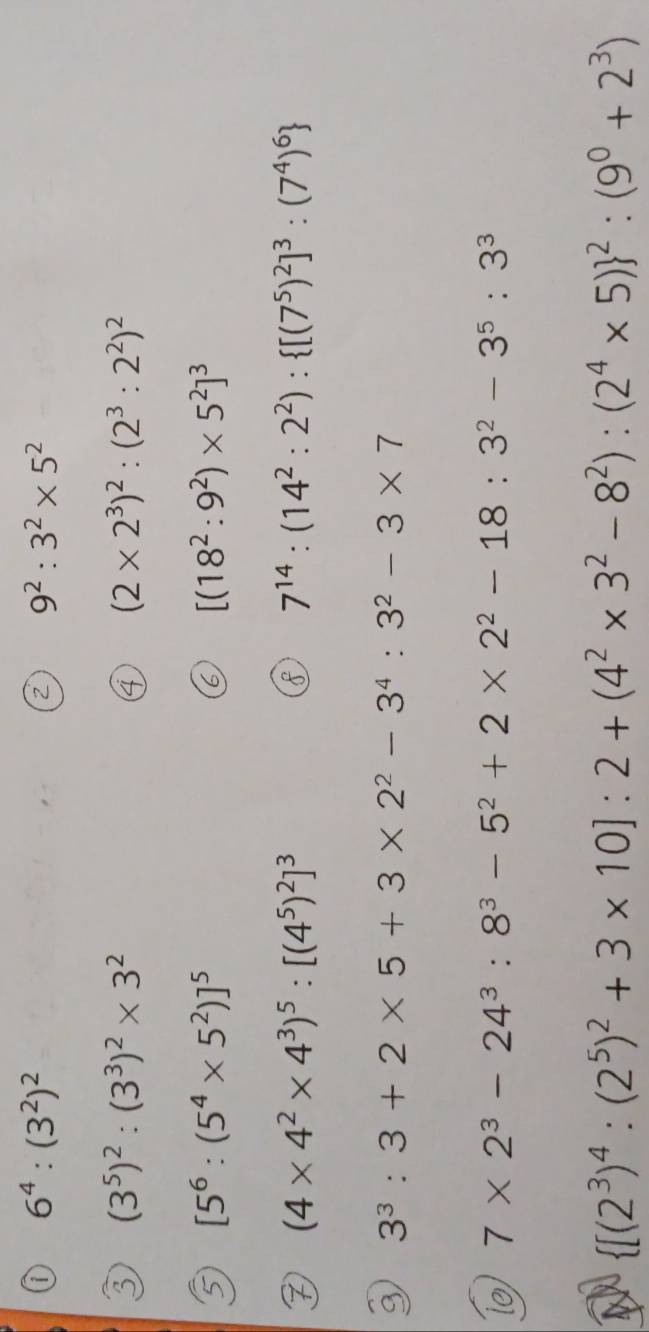 ① 6⁴ : (3²)² ② 9² : 3² × 5²
③ (3⁵)² : (3³)² × 3² ④ (2 × 2³)² : (2³ : 2²)²
⑤ [5⁶ : (5⁴ × 5²)]⁵ ⑥ [(18² : 9²) × 5²]³
⑦ (4 × 4² × 4³)⁵ : [(4⁵)²]³ ⑧ 7¹⁴ : (14² : 2²) : {[(7⁵)²]³ : (7⁴)⁶}
⑨ 3³ : 3 + 2 × 5 + 3 × 2² − 3⁴ : 3² − 3 × 7
⑩ 7 × 2³ − 24³ : 8³ − 5² + 2 × 2² − 18 : 3² − 3⁵ : 3³
{[(2³)⁴ : (2⁵)² + 3 × 10] : 2 + (4² × 3² − 8²) : (2⁴ × 5)}² : (9⁰ + 2³)